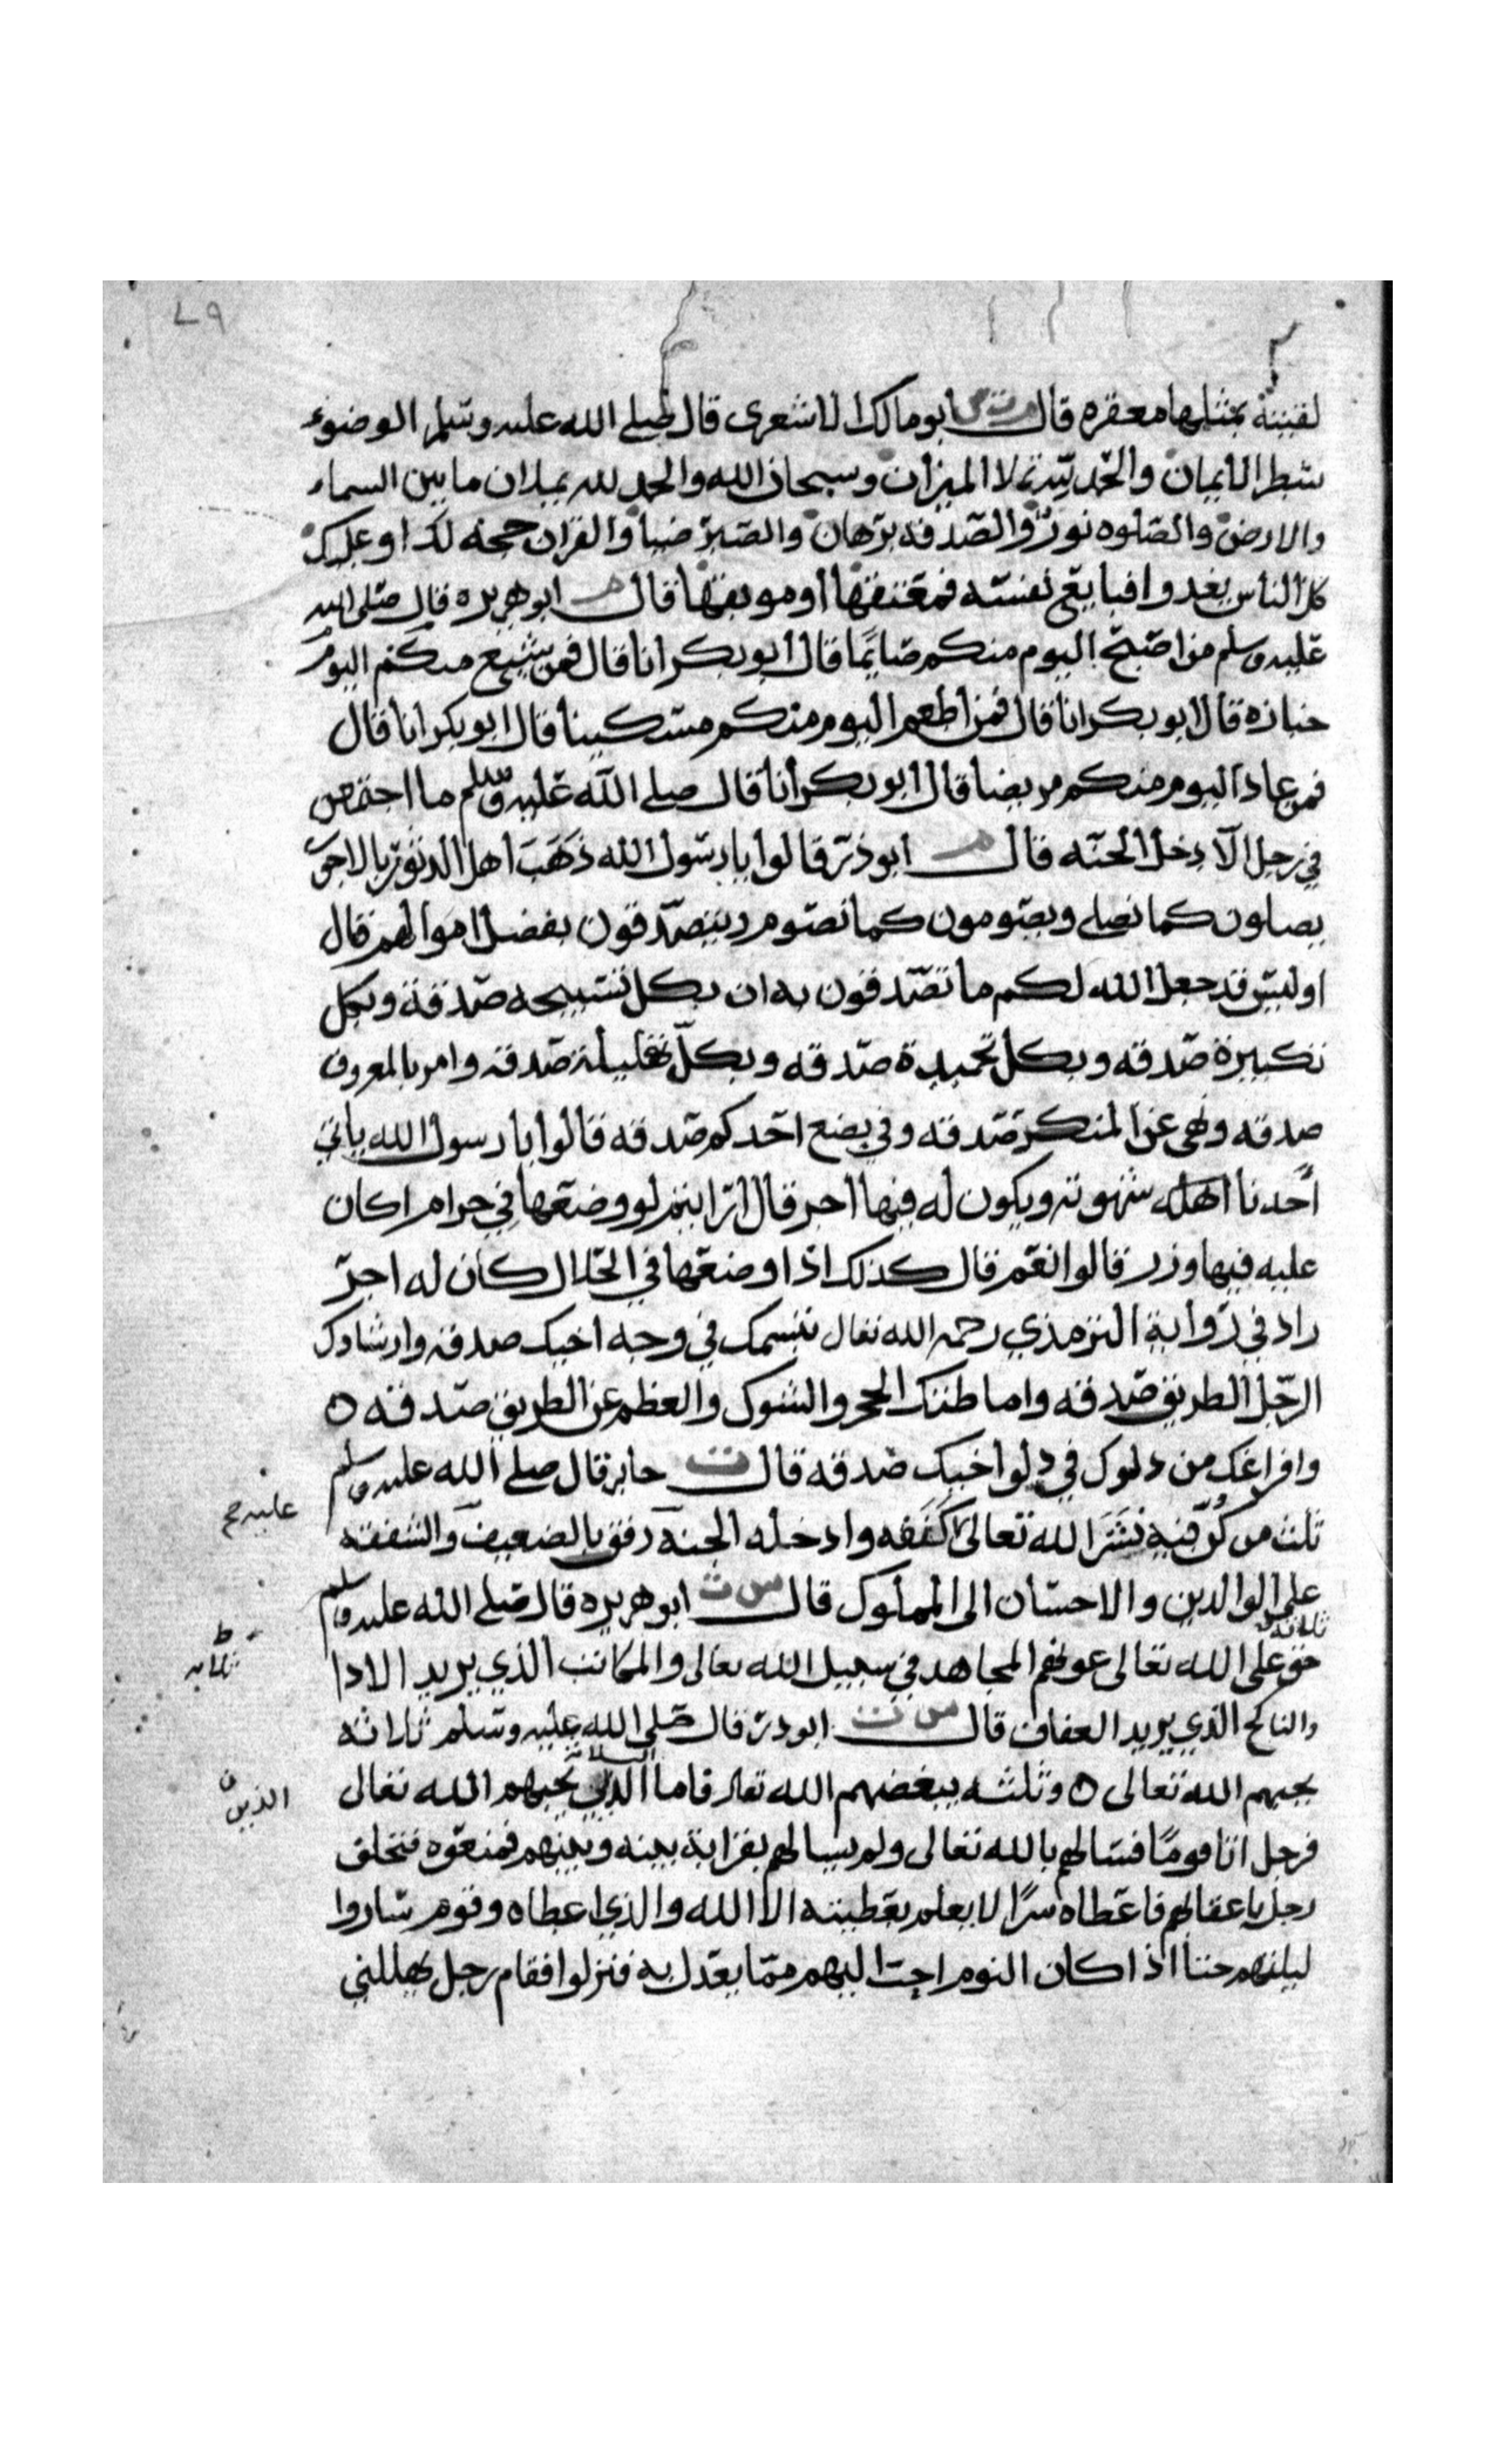 لقيته بمثلها مغفره قال م ت س ابو مالك الاشعرى قال صلى الله عليه وسلم الوضوء
شطر الايمان والحمد لله تملا الميزان وسبحان الله والحمد لله يملان ما بين السماء
والارض والصلوه نور والصدقه برهان والصبر ضيا والقران حجه لك او عليك
كل الناس يغدوا فبايع نفسه فمعتقها او موبقها قال م ابو هريره قال صلى الله
عليه وسلم من اصبح اليوم منكم صايما قال ابو بكر انا قال فمن شيع منكم اليوم
جنازه قال ابو بكر انا قال فمن اطعم اليوم منكم مسكينا قال ابو بكر انا قال
فمن عاد اليوم منكم مريضا قال ابو بكر انا قال صلى الله عليه وسلم ما اجتمعن
في رجل الا دخل الجنه قال م ابو ذر قالوا يا رسول الله ذهب اهل الدثور بالاجور
يصلون كما نصلى ويصومون كما نصوم ويتصدقون بفضل اموالهم قال
اوليس قد جعل الله لكم ما تصدقون به ان بكل تسبيحه صدقة وبكل
تكبيرة صدقه وبكل تحميدة صدقه وبكل تهليلة صدقه وامر بالمعروف
صدقه ونهى عن المنكر صدقه وفي بضع احدكم صدقه قالوا يا رسول الله ياتي
احدنا اهله شهوته ويكون له فيها اجر قال ارايتم لو وضعها في حرام اكان
عليه فيها وزر قالوا نعم قال كذلك اذا وضعها في الحلال كان له اجر
زاد في رواية الترمذي رحمه الله تعال تبسمك في وجه اخيك صدقه وارشادك
الرجل الطريق صدقه واماطتك الحجر والشوك والعظم عن الطريق صدقه ه
وافراغك من دلوك في دلو اخيك صدقه قال ت جابر قال صلى الله عليه وسلم
ثلث من كن فيه نشر الله تعالى كنفه وادخله الجنة رفق بالضعيف والشفقه
على الوالدين والاحسان الى المملوك قال س ت ابو هريره قال صلى الله عليه وسلم
ثلاثه
حق على الله تعالى عونهم المجاهد في سبيل الله تعالى والمكاتب الذي يريد الادا
والناكح الذي يريد العفاف قال س ت ابو ذر قال صلى الله عليه وسلم ثلاثه
يحبهم الله تعالى ه وثلثه يبغضهم الله تعال فاما الذين يحبهم الله تعالى
الذين
فرجل اتا قوما فسالهم بالله تعالى ولم يسالهم بقرابة بينه وبينهم فمنعوه فتخلف
رجل باعقابهم فاعطاه سرا لا يعلم بعطيته الا الله والذي اعطاه وقوم ساروا
ليلتهم حتا اذا كان النوم احب اليهم مما يعدل به فنزلوا فقام رجل يتملقني